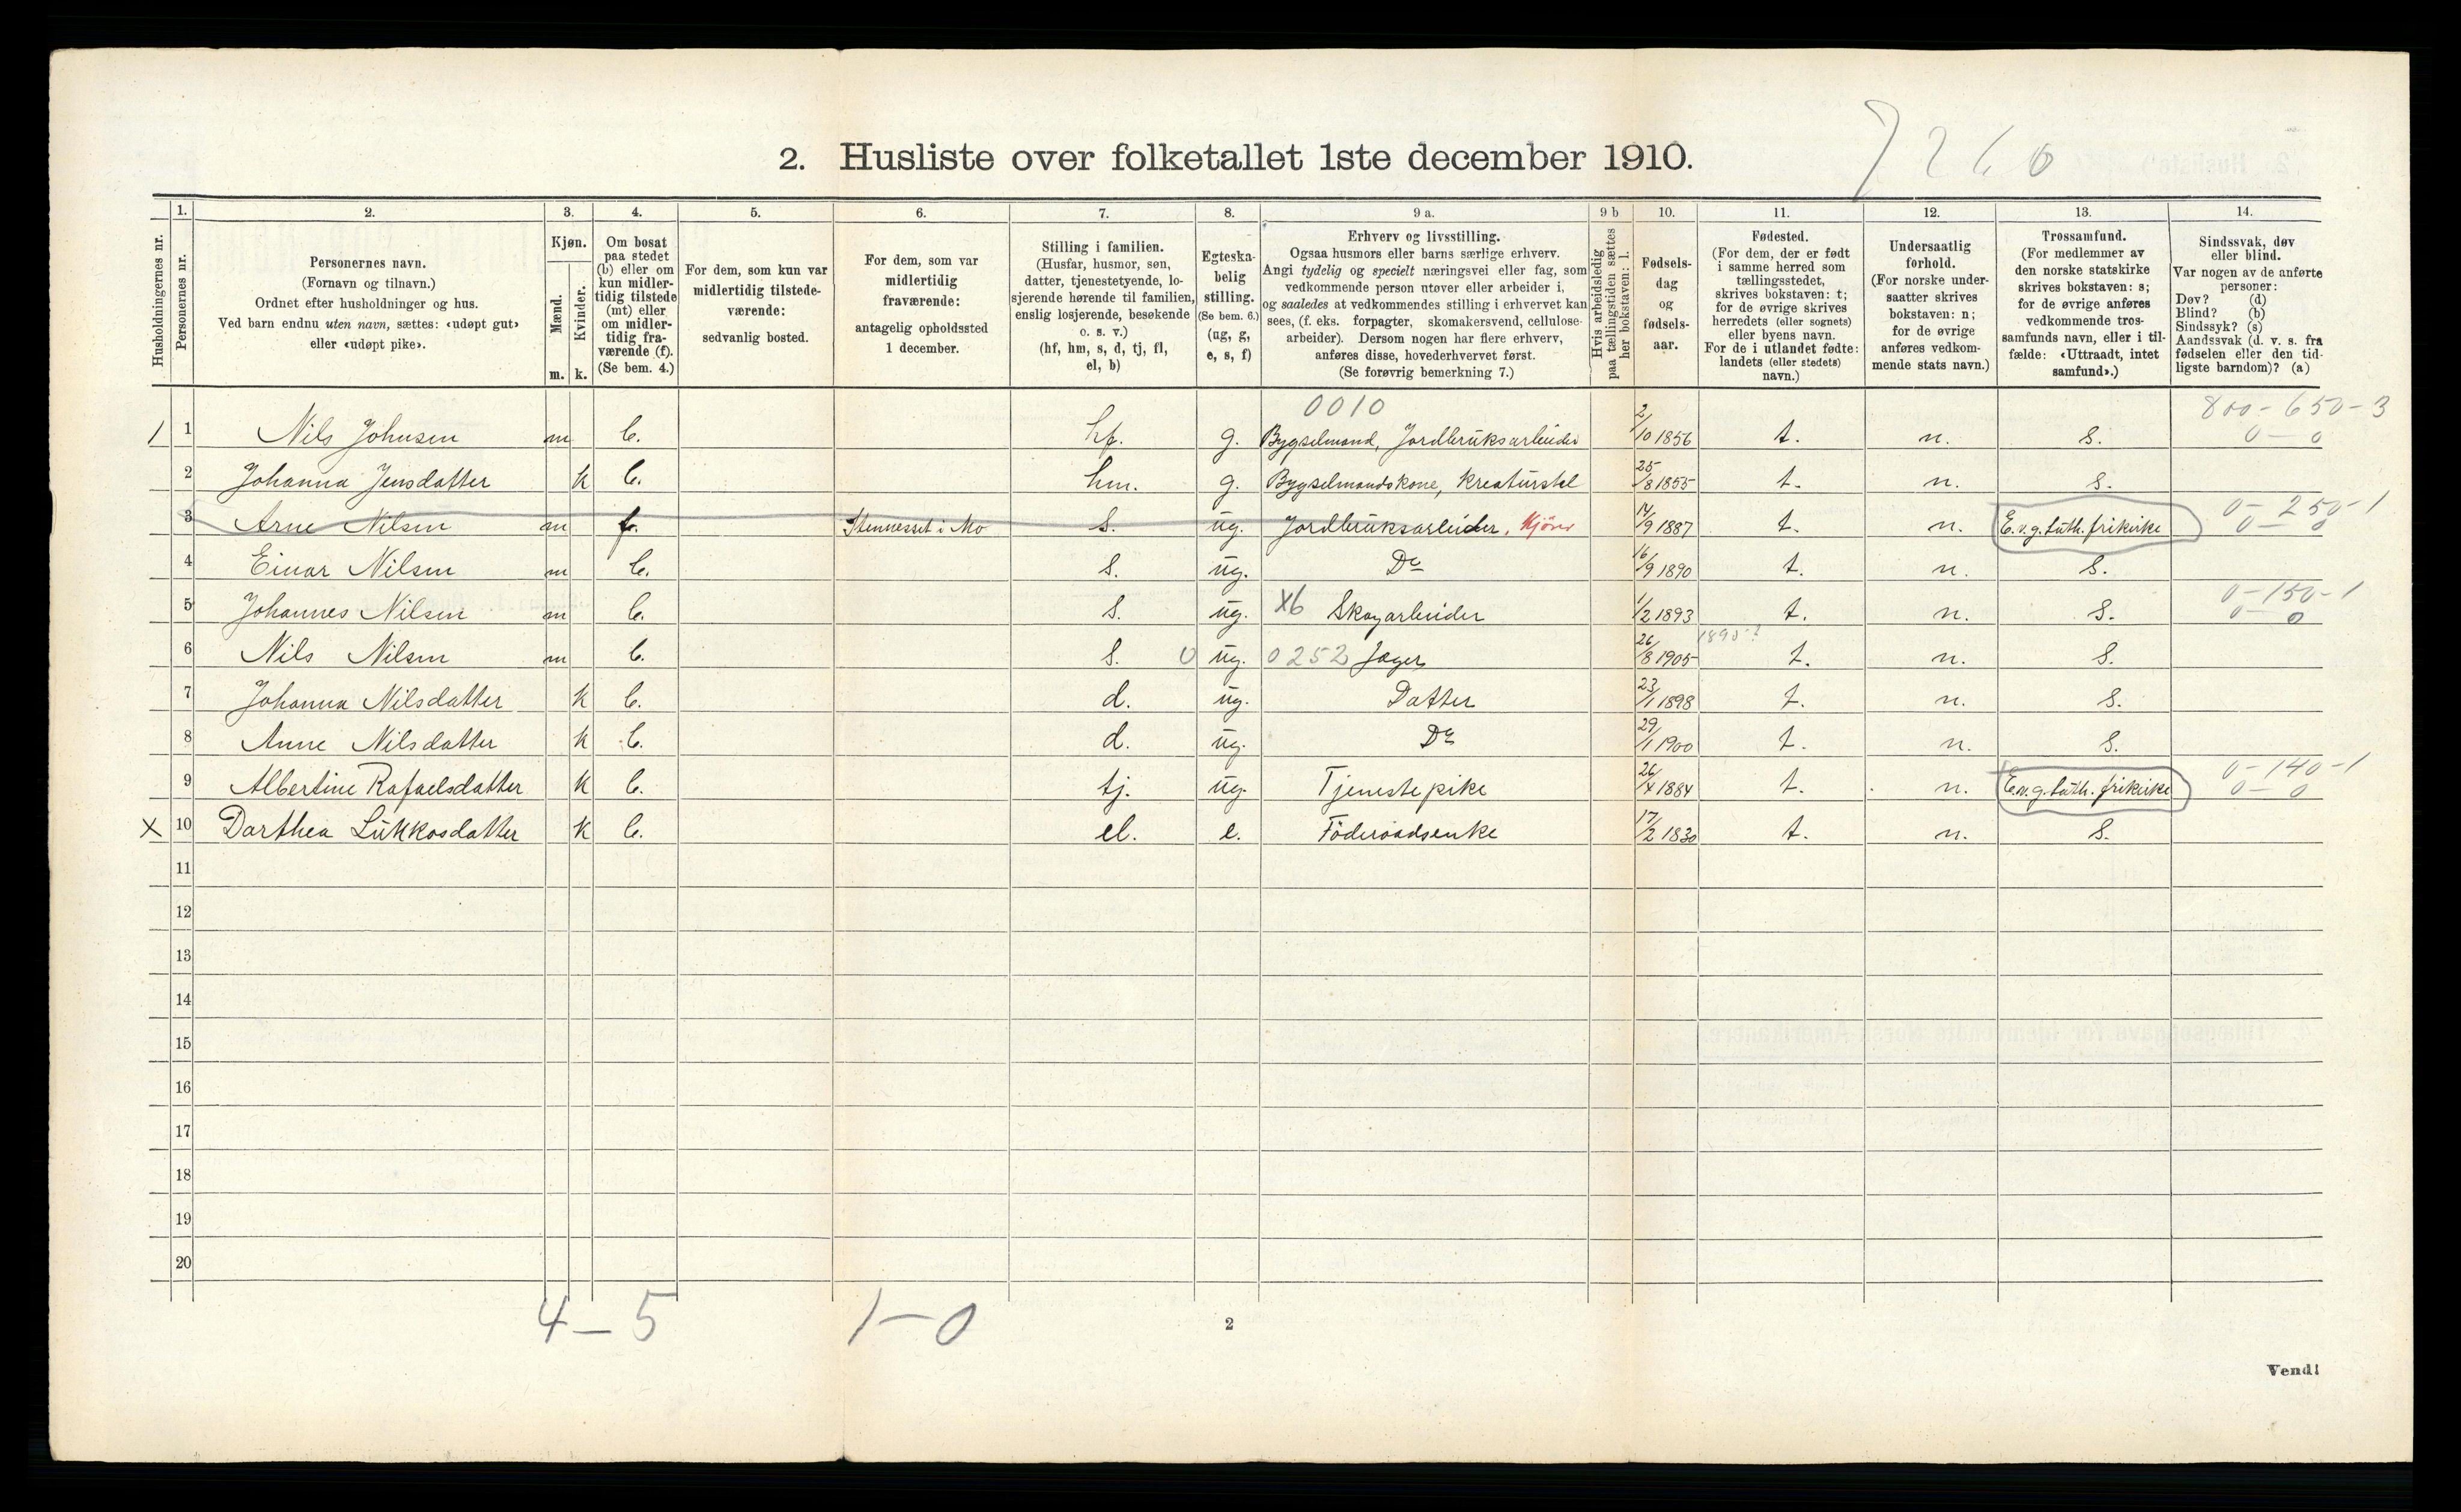 2. Husliste over folketallet 1ste december 1910.
7260
Husholdningernes nr.
1. Personernes nr.
2. Personernes navn.
(Fornavn og tilnavn.)
Ordnet efter husholdninger og hus.
Ved barn endnu uten navn, sættes: «udøpt gut»
eller «udøpt pike».
3. Kjøn.
Mænd. Kvinder.
m. k.
4. Om bosat
paa stedet
(b) eller om
kun midler-
tidig tilstede
(mt) eller
om midler-
tidig fra-
værende (f).
(Se bem. 4.)
5. For dem, som kun var
midlertidig tilstede-
værende:
sedvanlig bosted.
6. For dem, som var
midlertidig
fraværende:
antagelig opholdssted
1 december.
7. Stilling i familien.
(Husfar, husmor, søn,
datter, tjenestetyende, lo-
sjerende hørende til familien,
enslig losjerende, besøkende
o. s. v.)
(hf, hm, s, d, tj, fl,
el, b)
8. Egteska-
belig
stilling.
(Se bem. 6.)
(ug, g,
e, s, f)
9 a. Erhverv og livsstilling.
Ogsaa husmors eller barns særlige erhverv.
Angi tydelig og specielt næringsvei eller fag, som
vedkommende person utøver eller arbeider i,
og saaledes at vedkommendes stilling i erhvervet kan
sees, (f. eks. forpagter, skomakersvend, cellulose-
arbeider). Dersom nogen har flere erhverv,
anføres disse, hovederhvervet først.
(Se forøvrig bemerkning 7.)
9 b Hvis arbeidsledig
paa tællingstiden sættes
her bokstaven: l.
10. Fødsels-
dag
og
fødsels-
aar.
11. Fødested.
(For dem, der er født
i samme herred som
tællingsstedet,
skrives bokstaven: t;
for de øvrige skrives
herredets (eller sognets)
eller byens navn.
For de i utlandet fødte:
landets (eller stedets)
navn.)
12. Undersaatlig
forhold.
(For norske under-
saatter skrives
bokstaven: n;
for de øvrige
anføres vedkom-
mende stats navn.)
13. Trossamfund.
(For medlemmer av
den norske statskirke
skrives bokstaven: s;
for de øvrige anføres
vedkommende tros-
samfunds navn, eller i til-
fælde: «Uttraadt, intet
samfund».)
14. Sindssvak, døv
eller blind.
Var nogen av de anførte
personer:
Døv? (d)
Blind? (b)
Sindssyk? (s)
Aandssvak (d. v. s. fra
fødselen eller den tid-
ligste barndom)? (a)
0010 800-650-3
1 1 Nils Johnsen m b. hf. g. Bygselmand, Jordbruksarbeider 2/10 1856 t. n. s. 0-0
2 Johanna Jensdatter k b. hm. g. Bygselmandskone, Kreaturstel 25/8 1855 t. n. s.
0-250-1
3 Arne Nilsen m f. Stennesset i Mo s. ug. Jordbruksarbeider. 14/9 1887 t. n. E.v.g. luth. frikirke 0-0
4 Einar Nilsen m b. s. ug. Do 16/9 1890 t. n. s.
0-150-1
5 Johannes Nilsen m b. s. ug. X6 Skogarbeider 1/2 1893 t. n. s. 0-0
1895?
6 Nils Nilsen m b. s. 0 ug. 0252 Jager 26/8 1905 t. n. s.
7 Johanna Nilsdatter k b. d. ug. Datter 23/1 1898 t. n. s.
8 Anne Nilsdatter k b. d. ug. Do 29/1 1900 t. n. s.
0-140-1
9 Albertine Rafaelsdatter k b. tj. ug. Tjenestepike 26/4 1884 t. n. E.v.g. luth. frikirke 0-0
X 10 Darthea Lukkasdatter k b. el. e. Föderaadsenke 17/2 1830 t. n. s.
11
12
13
14
15
16
17
18
19
20
4-5 1-0
2
Vend!